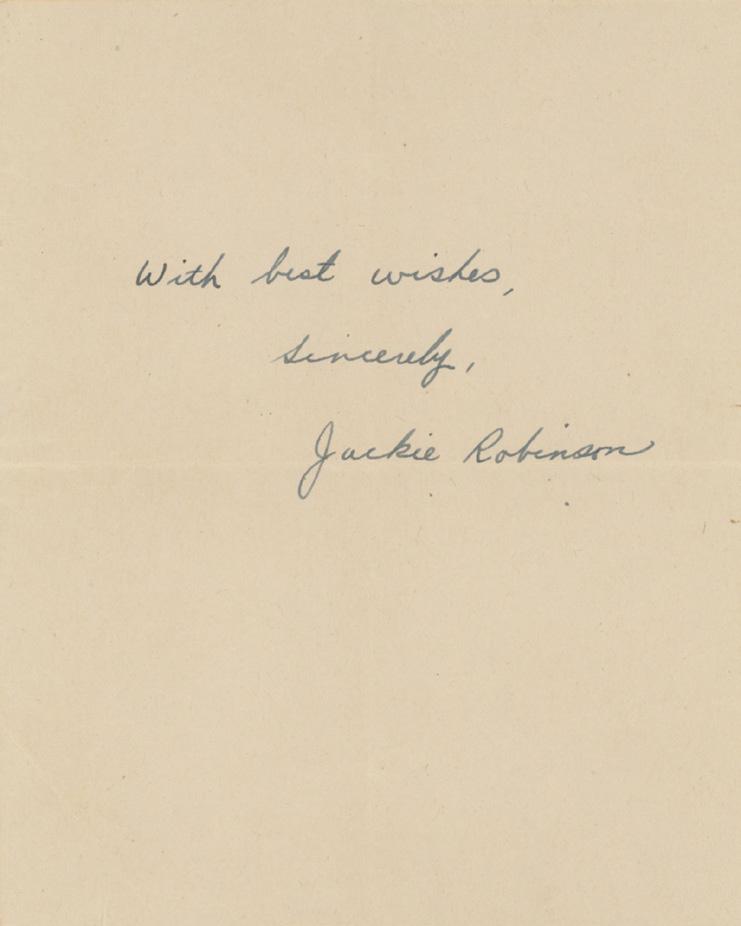 With best wishes,
sincerely,
Jackie Robinson